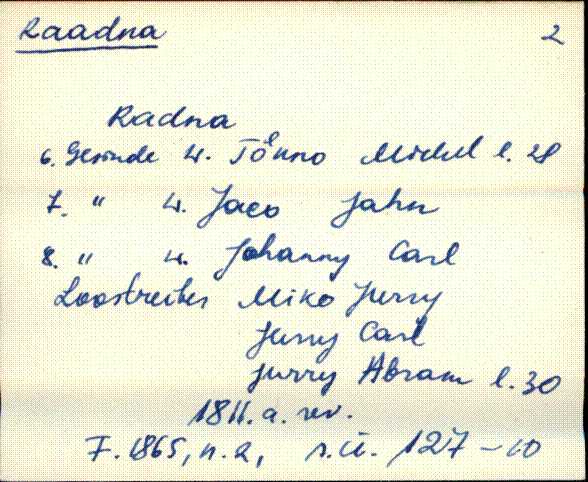 Raadna 2
Radna
6. Gesinde W. Tõnno Michel l. 28
7. " W. Jaco Jahn
8. " W. Johanny Carl
Lostreiber Miko Jurry
Jurry Carl
Jurry Abram l. 30
1811. a. rev.
F. 1865, n. 2, s.ü. 127-10